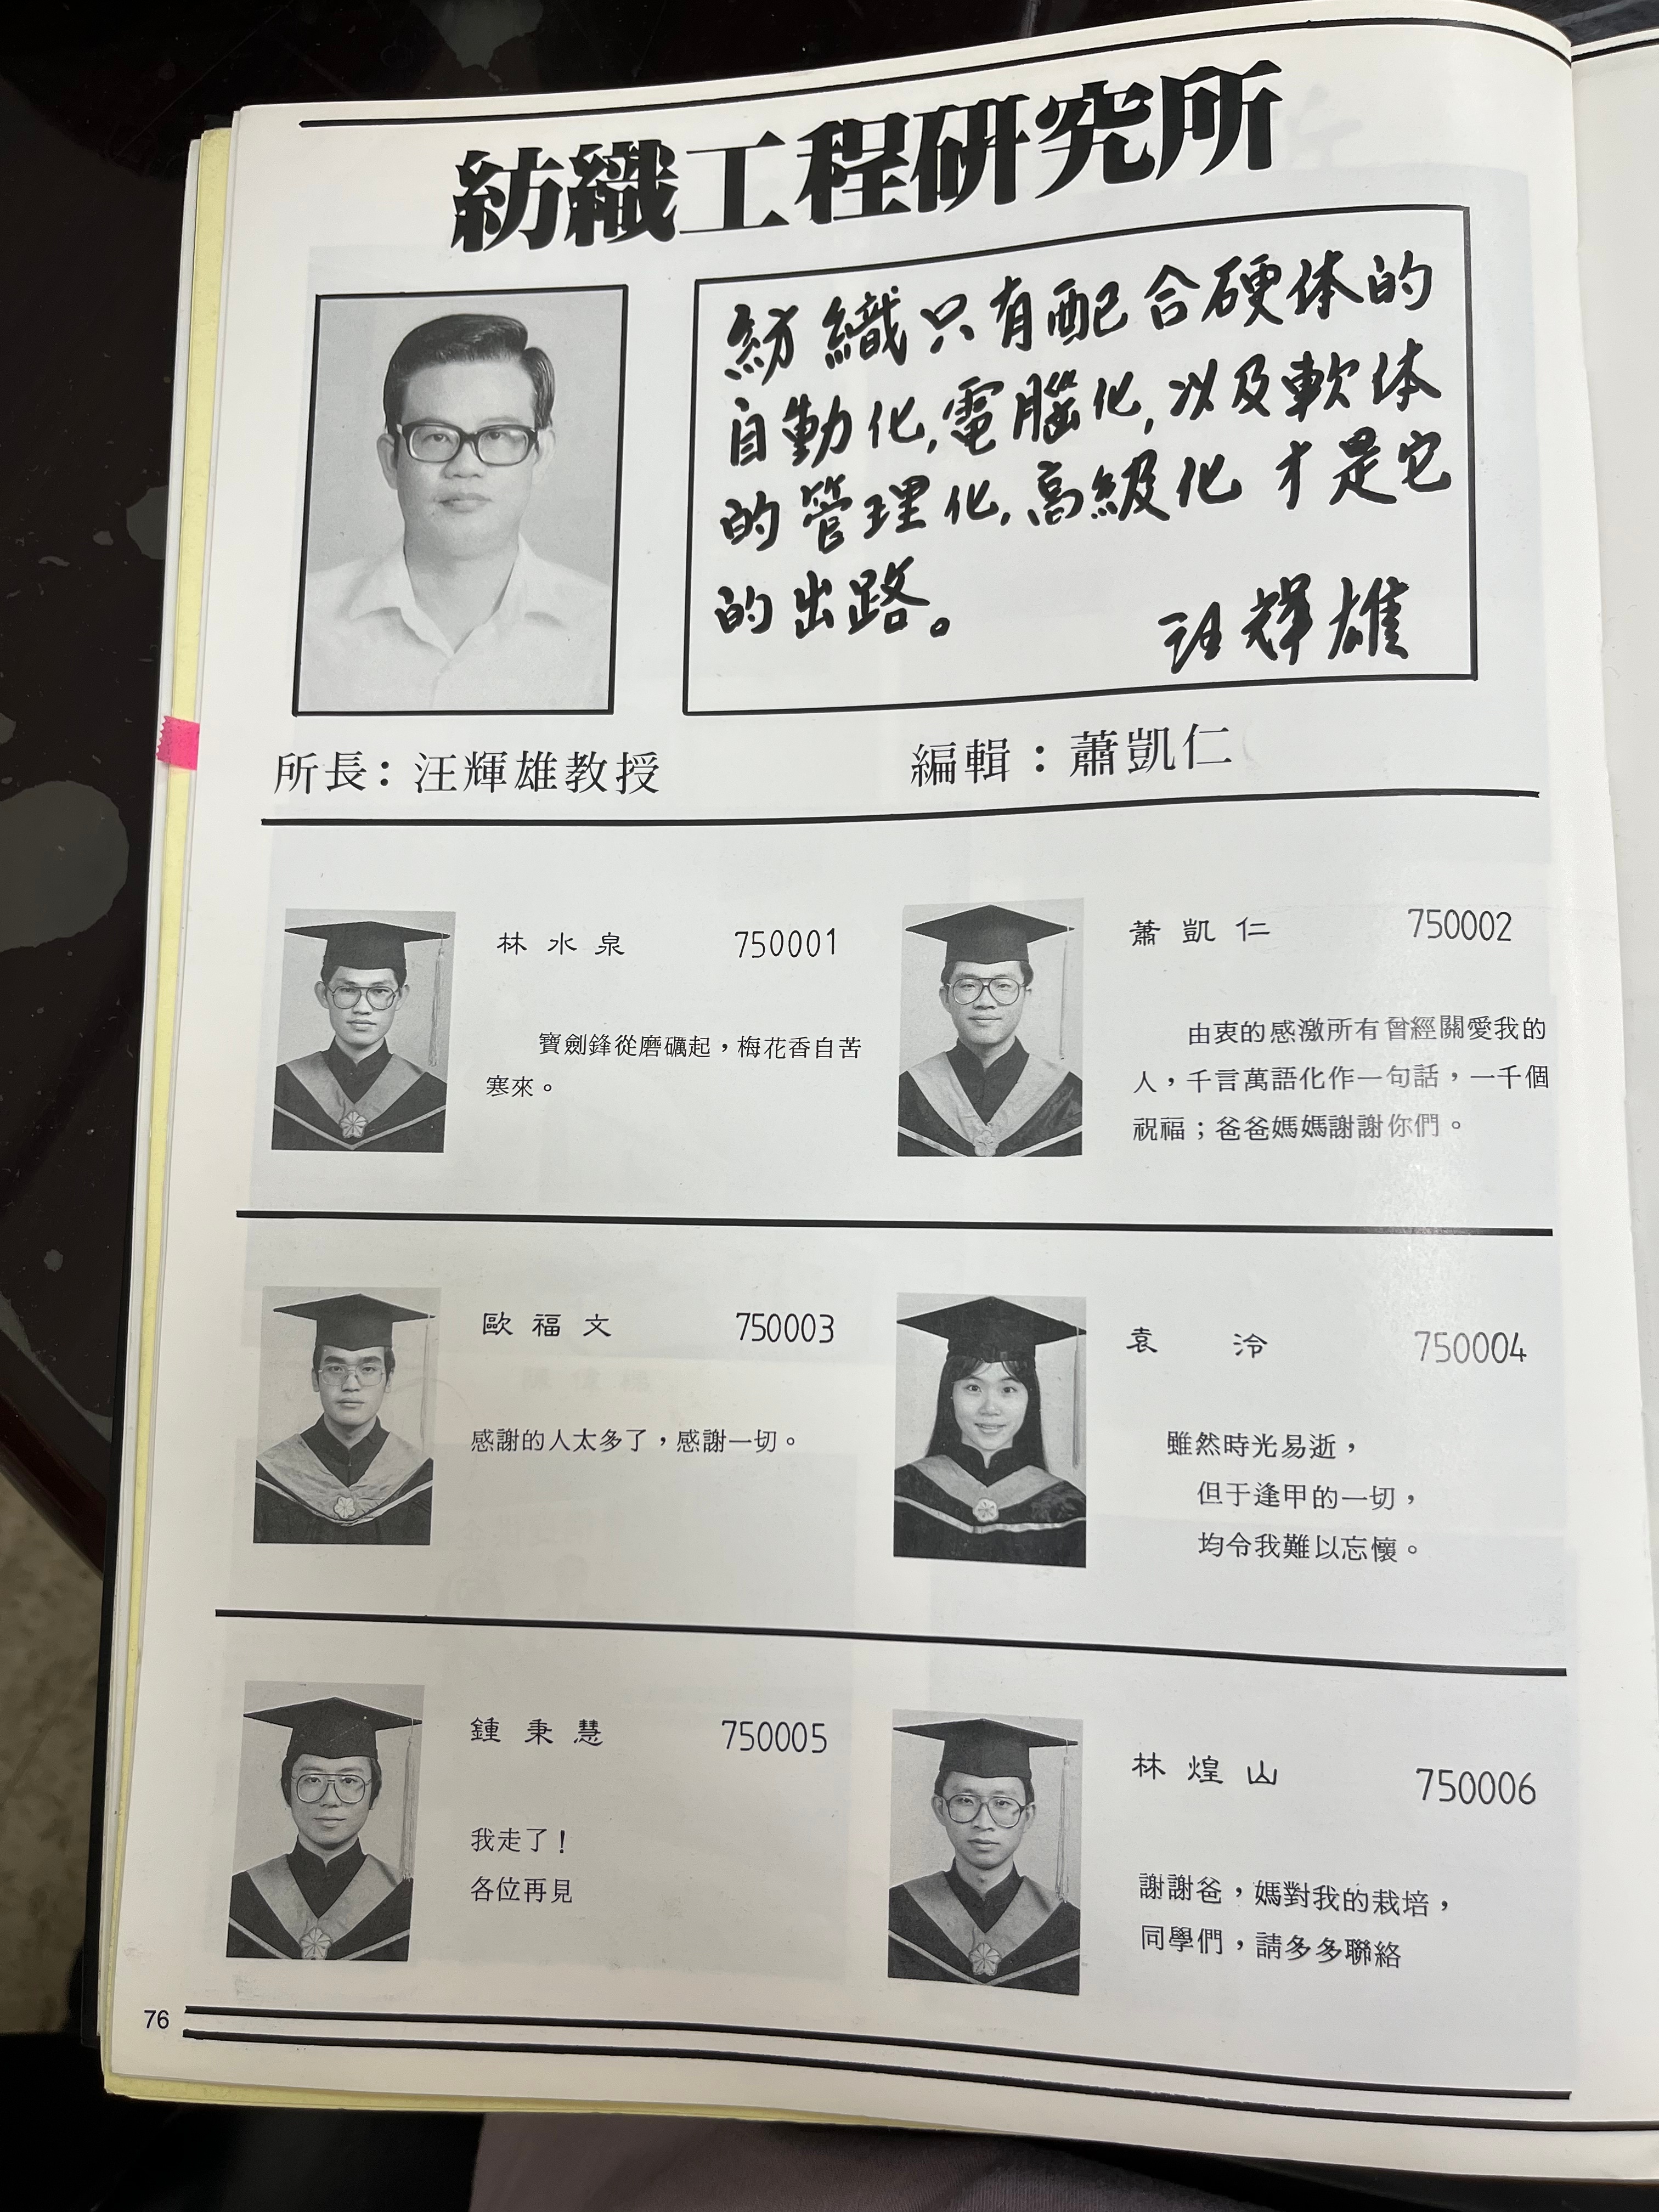 紡織工程研究所
紡織只有配合硬体的
自動化,電腦化,以及軟体
的管理化,高級化 才是它
的出路。
汪輝雄
所長：汪輝雄教授
編輯：蕭凱仁
林水泉 750001
寶劍鋒從磨礪起，梅花香自苦
寒來。
蕭凱仁 750002
由衷的感激所有曾經關愛我的
人，千言萬語化作一句話，一千個
祝福；爸爸媽媽謝謝你們。
歐福文 750003
感謝的人太多了，感謝一切。
袁 泠 750004
雖然時光易逝，
但于逢甲的一切，
均令我難以忘懷。
鍾秉慧 750005
我走了！
各位再見
林煌山 750006
謝謝爸，媽對我的栽培，
同學們，請多多聯絡
76